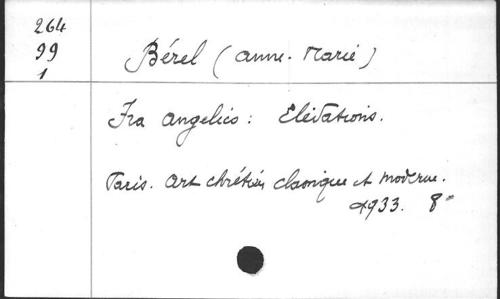 264
99
1
Bérel (Anne-Marie)
Fra Angelico : Elévations.
Paris. Art chrétien classique et moderne.
1933. 8°